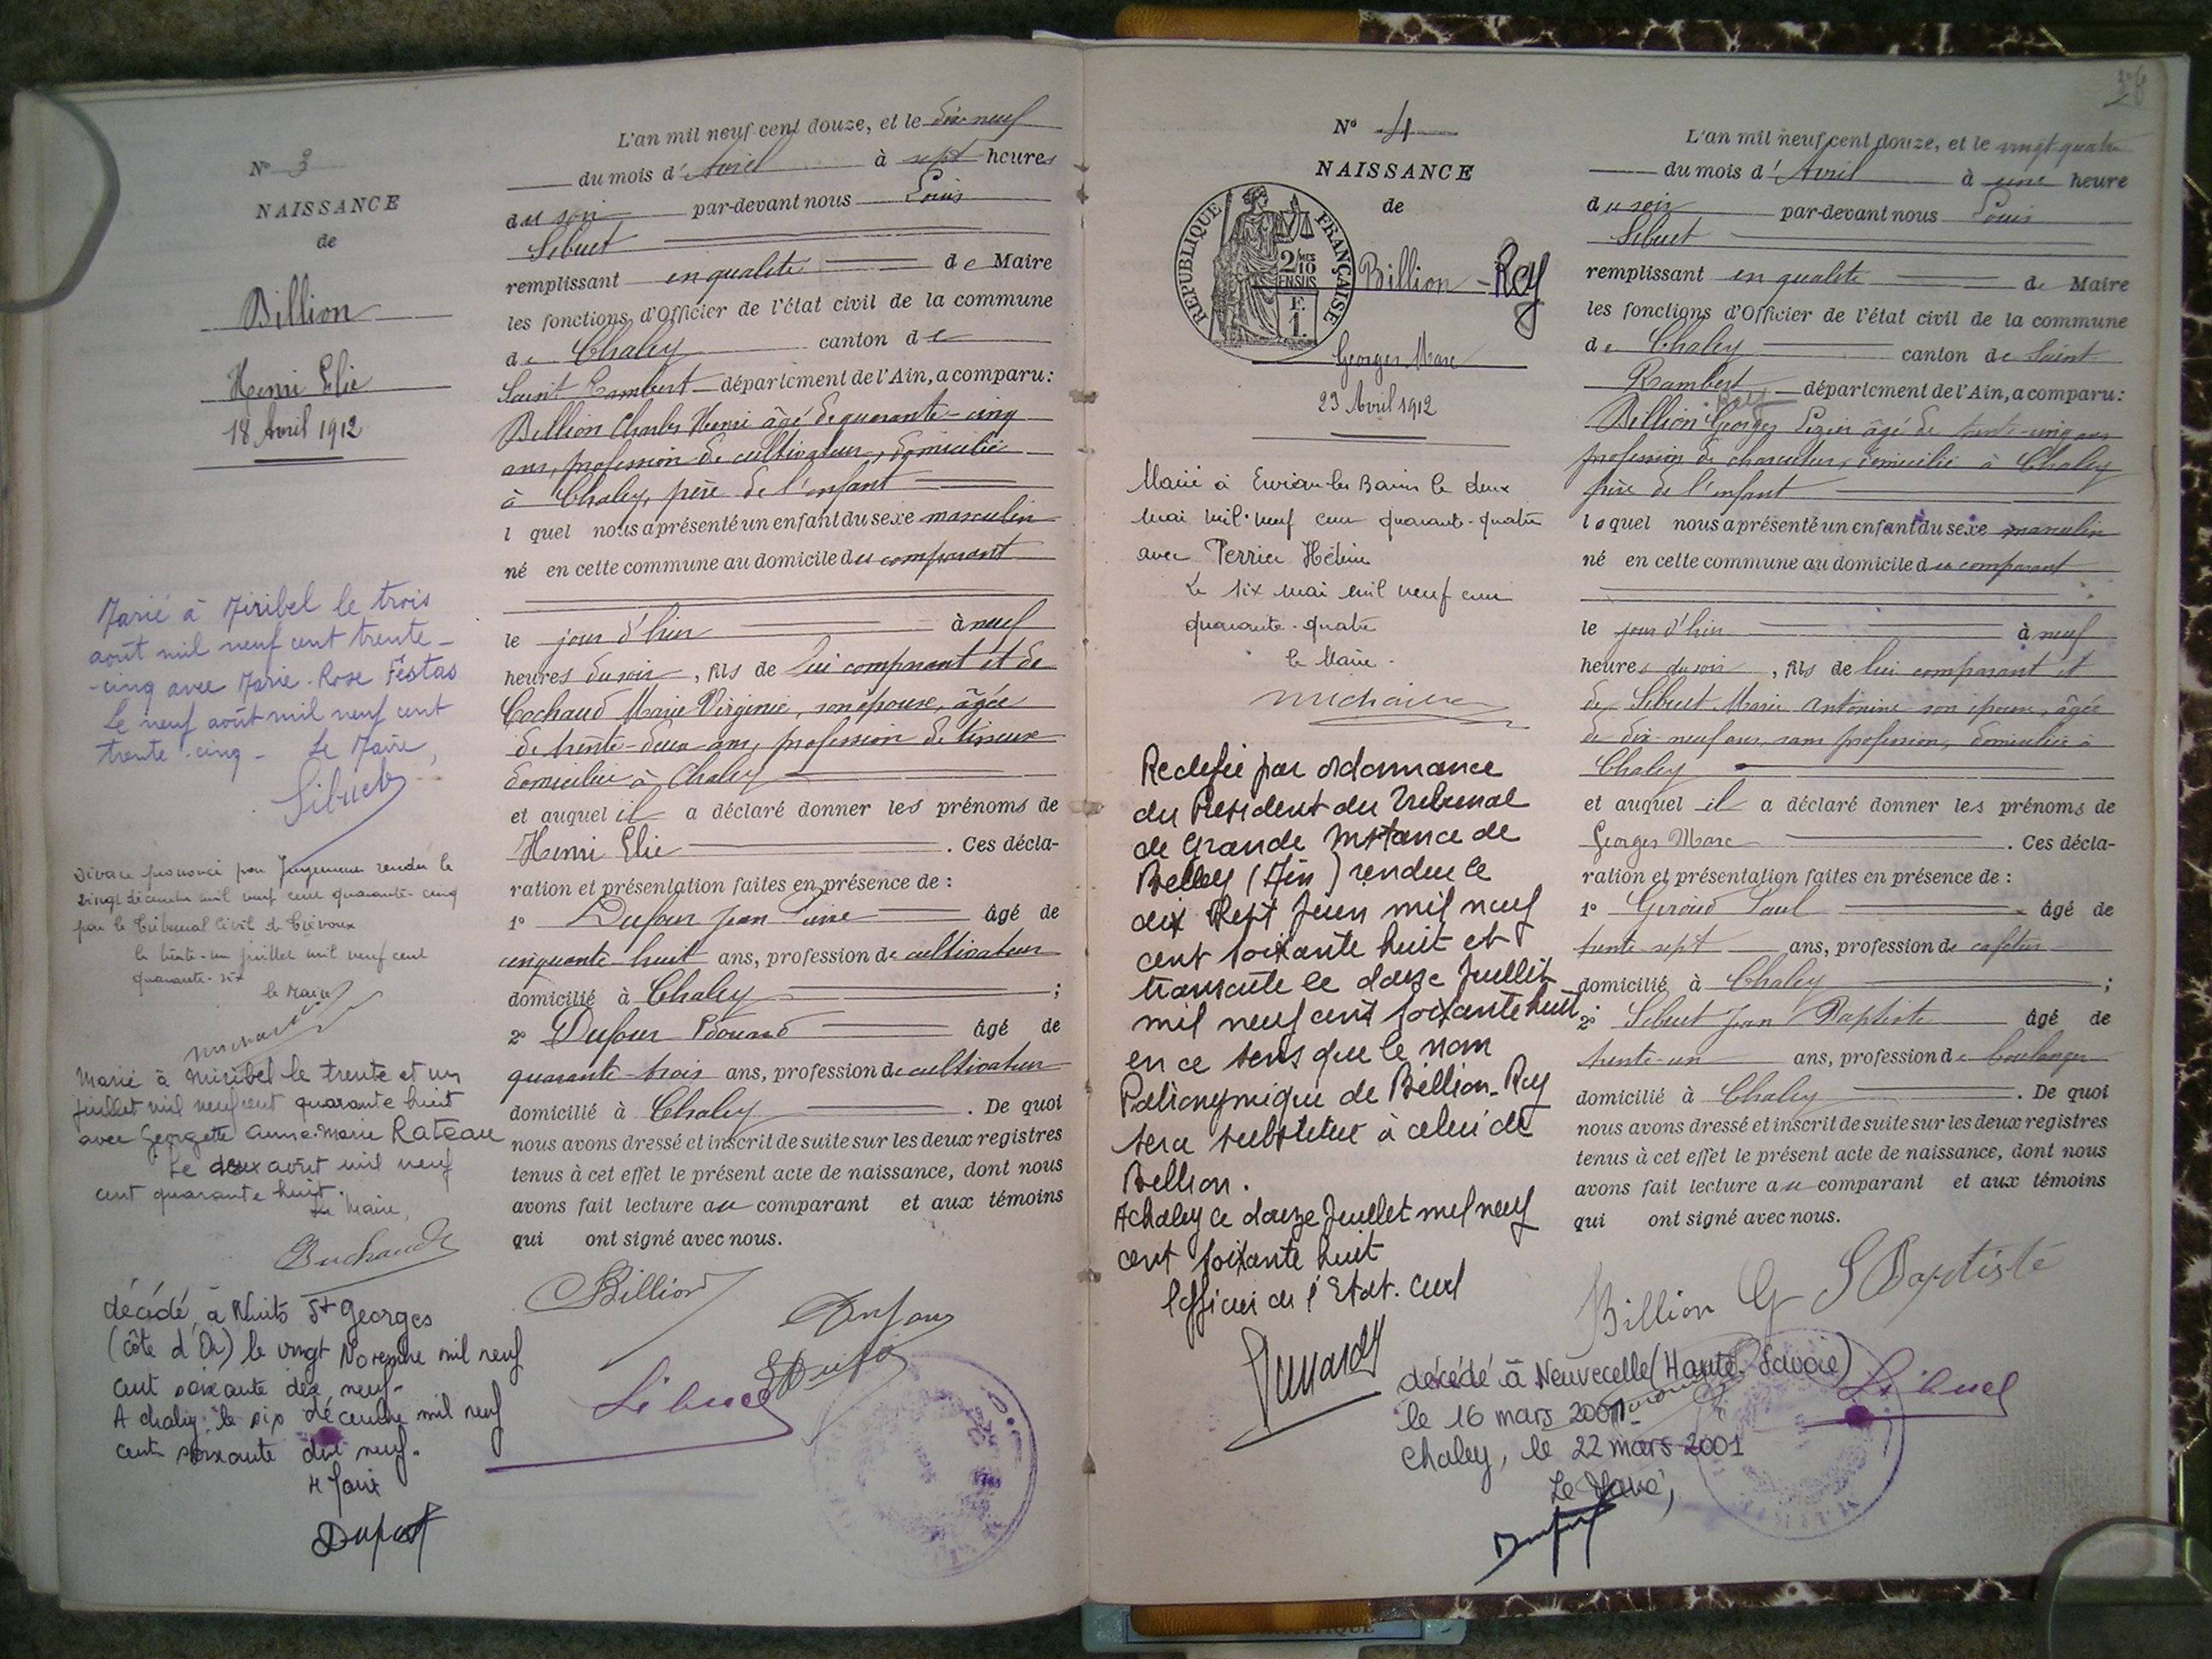 N° 3
NAISSANCE
de
Billion
Henri Elie
18 Avril 1912
Marié à Miribel le trois
août mil neuf cent trente-
-cinq avec Marie-Rose Festas
Le neuf août mil neuf cent
trente-cinq - Le Maire,
Sibuet
Divorce prononcé par Jugement rendu le
vingt décembre mil neuf cent quarante-cinq
par le Tribunal Civil de Trévoux
le trente-un juillet mil neuf cent
quarante-six
le Maire
Marié à Miribel le trente et un
juillet mil neuf cent quarante huit
avec Georgette Anne-Marie Rateau
Le deux août mil neuf
cent quarante huit.
Le Maire,
décédé à Nuits St Georges
(côte d'Or) le vingt Novembre mil neuf
cent soixante dix neuf.
A chaley le six décembre mil neuf
cent soixante dix neuf.
L'an mil neuf cent douze, et le dix neuf
du mois d'Avril à sept heures
du soir par-devant nous Louis
Sibuet
remplissant en qualité de Maire
les fonctions d'Officier de l'état civil de la commune
de Chaley canton de
Saint Rambert département de l'Ain, a comparu:
Billion Charles Henri âgé de quarante-cinq
ans, profession de cultivateur, domicilié
à Chaley, père de l'enfant
l quel nous a présenté un enfant du sexe masculin
né en cette commune au domicile du comparant
le jour d'hier à neuf
heures du soir, fils de lui comparant et de
Cochaud Marie Virginie, son épouse, âgée
de trente-deux ans, profession de tisseuse
domiciliée à Chaley
et auquel il a déclaré donner les prénoms de
Henri Elie. Ces décla-
ration et présentation faites en présence de :
1° Dufour Jean âgé de
cinquante-huit ans, profession de cultivateur
domicilié à Chaley ;
2° Dufour Edouard âgé de
quarante-trois ans, profession de cultivateur
domicilié à Chaley. De quoi
nous avons dressé et inscrit de suite sur les deux registres
tenus à cet effet le présent acte de naissance, dont nous
avons fait lecture au comparant et aux témoins
qui ont signé avec nous.
Billion
Dufour
Sibuet
N° 4
NAISSANCE
de
RÉPUBLIQUE FRANÇAISE
2/10 MES
EN SUS
F.
1.
Billion - Rey
Georges Marc
23 Avril 1912
Marié à Evian les Bains le deux
mai mil neuf cent quarante-quatre
avec Perrier Hélène
Le six mai mil neuf cent
quarante-quatre
le Maire.
Rectifié par ordonnance
du Président du Tribunal
de Grande Instance de
Belley (Ain) rendue le
dix sept Juin mil neuf
cent soixante huit et
transcrite le douze Juillet
mil neuf cent soixante huit
en ce sens que le nom
Patronymique de Billion-Rey
sera substitué à celui de
Billion.
A chaley ce douze Juillet mil neuf
cent soixante huit
l'officier de l'Etat. Civil
L'an mil neuf cent douze, et le vingt quatre
du mois d'Avril à une heure
du soir par-devant nous Louis
Sibuet
remplissant en qualité de Maire
les fonctions d'Officier de l'état civil de la commune
de Chaley canton de Saint
Rambert département de l'Ain, a comparu:
Rey
Billion Georges âgé de trente-cinq ans
profession de charcutier, domicilié à Chaley
père de l'enfant
lequel nous a présenté un enfant du sexe masculin
né en cette commune au domicile du comparant
le jour d'hier à neuf
heures du soir, fils de lui comparant et
de Sibuet Marie Antonine son épouse, âgée
de dix-neuf ans, sans profession, domiciliée à
Chaley
et auquel il a déclaré donner les prénoms de
Georges Marc. Ces décla-
ration et présentation faites en présence de :
1° Giroud Paul âgé de
trente sept ans, profession de cafetier
domicilié à Chaley ;
2° Sibuet Jean Baptiste âgé de
trente-un ans, profession de boulanger
domicilié à Chaley. De quoi
nous avons dressé et inscrit de suite sur les deux registres
tenus à cet effet le présent acte de naissance, dont nous
avons fait lecture au comparant et aux témoins
qui ont signé avec nous.
Billion G S Baptiste
Sibuet
décédé à Neuvecelle (Haute-Savoie)
le 16 mars 2001
Chaley, le 22 mars 2001
Le Maire,